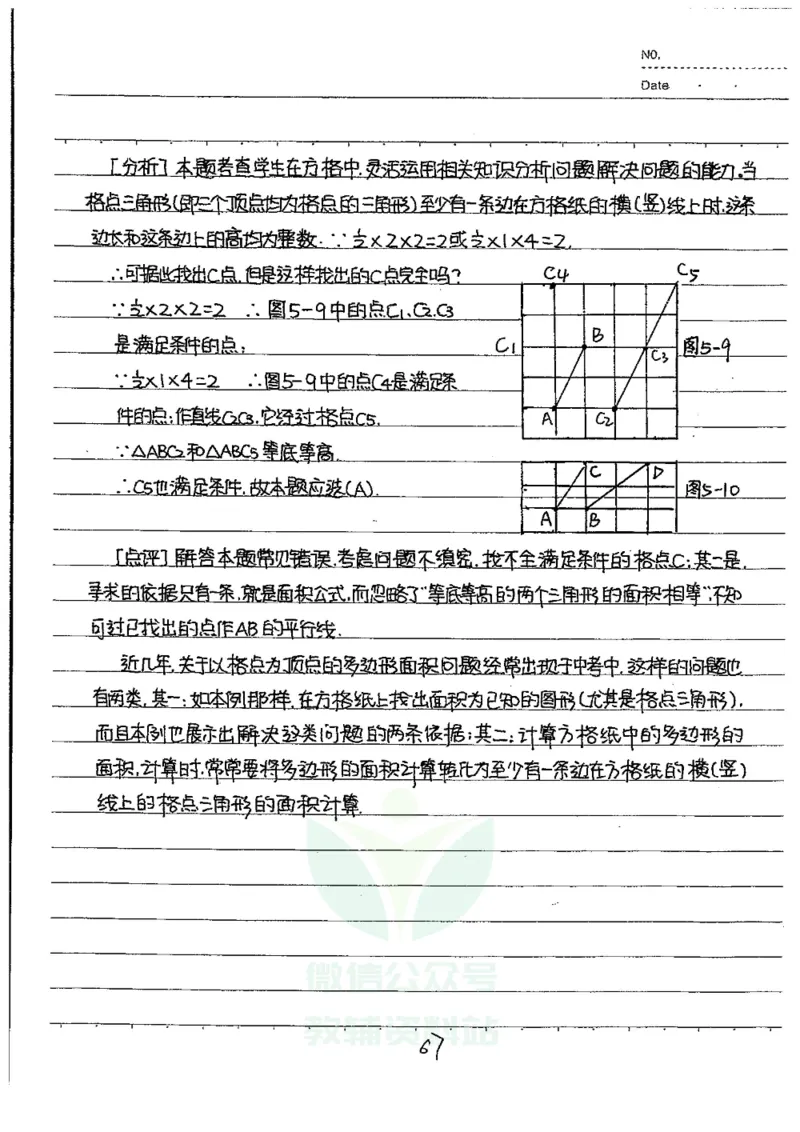 NO.
Date
[分析] 本题考查学生在方格中,灵活运用相关知识分析问题解决问题的能力.当
格点三角形(即三个顶点均为格点的三角形)至少有一条边在方格纸的横(竖)线上时,这条
边长和这条边上的高均为整数. ∵½×2×2=2或½×1×4=2,
∴可据此找出C点,但是这样找出的C点完全吗?
∵½×2×2=2 ∴图5-9中的点C1、C2、C3
是满足条件的点;
∵½×1×4=2 ∴图5-9中的点C4是满足条
件的点;作直线C2C3,它经过格点C5,
∵△ABC2和△ABC5等底等高.
∴C5也满足条件.故本题应选(A).
C4
C5
C1
B
C3
图5-9
A
C2
C
D
图5-10
A
B
[点评] 解答本题常见错误,考虑问题不缜密,找不全满足条件的格点C;其二是,
寻求的依据只有一条,就是面积公式,而忽略了"等底等高的两个三角形的面积相等",不知
可过已找出的点作AB的平行线.
近几年,关于以格点为顶点的多边形面积问题经常出现于中考中,这样的问题也
有两类,其一:如本例那样,在方格纸上找出面积为已知的图形(尤其是格点三角形),
而且本例也展示出解决这类问题的两条依据;其二:计算方格纸中的多边形的
面积,计算时,常常要将多边形的面积计算转化为至少有一条边在方格纸的横(竖)
线上的格点三角形的面积计算.
微信公众号
教辅资料站
67